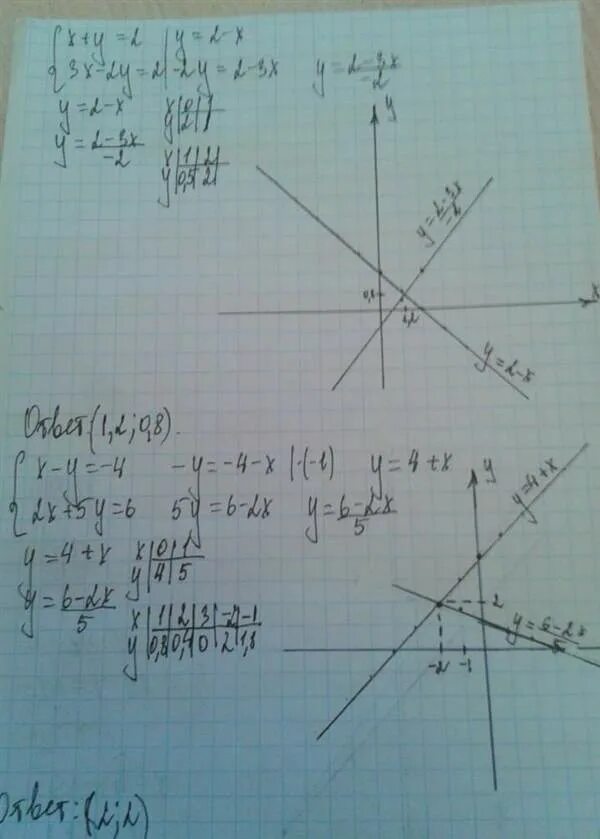 {x+y=2 | y=2-x
{3x-2y=2 | -2y=2-3x y=2-3x/-2
y=2-x x|0|1
y|2|1
y=2-3x/-2 x|1|2|
y|0,5|2|
y
y=2-3x/-2
0,8
1,2
x
y=2-x
Ответ(1,2;0,8).
{x-y=-4 -y=-4-x |·(-1) y=4+x
{2x+5y=6 5y=6-2x y=6-2x/5
y=4+x x|0|1
y|4|5
y=6-2x/5 x|1|2|3|-2|-1
y|0,8|0,4|0|2|1,8
y
y=4+x
2
y=6-2x/5
-2 -1
Ответ:(-2;2)